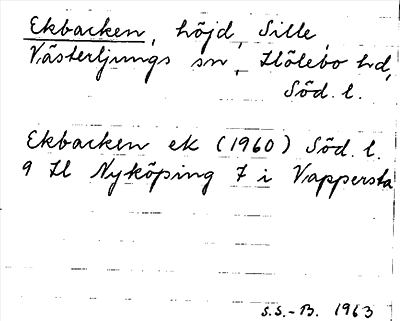 Ekbacken, höjd, Sille,
Västerljungs sn, Hölebo hd,
Söd. l.
Ekbacken ek (1960) Söd. l.
9 Il Nyköping 7 i Vappersta
S.S.-B. 1963